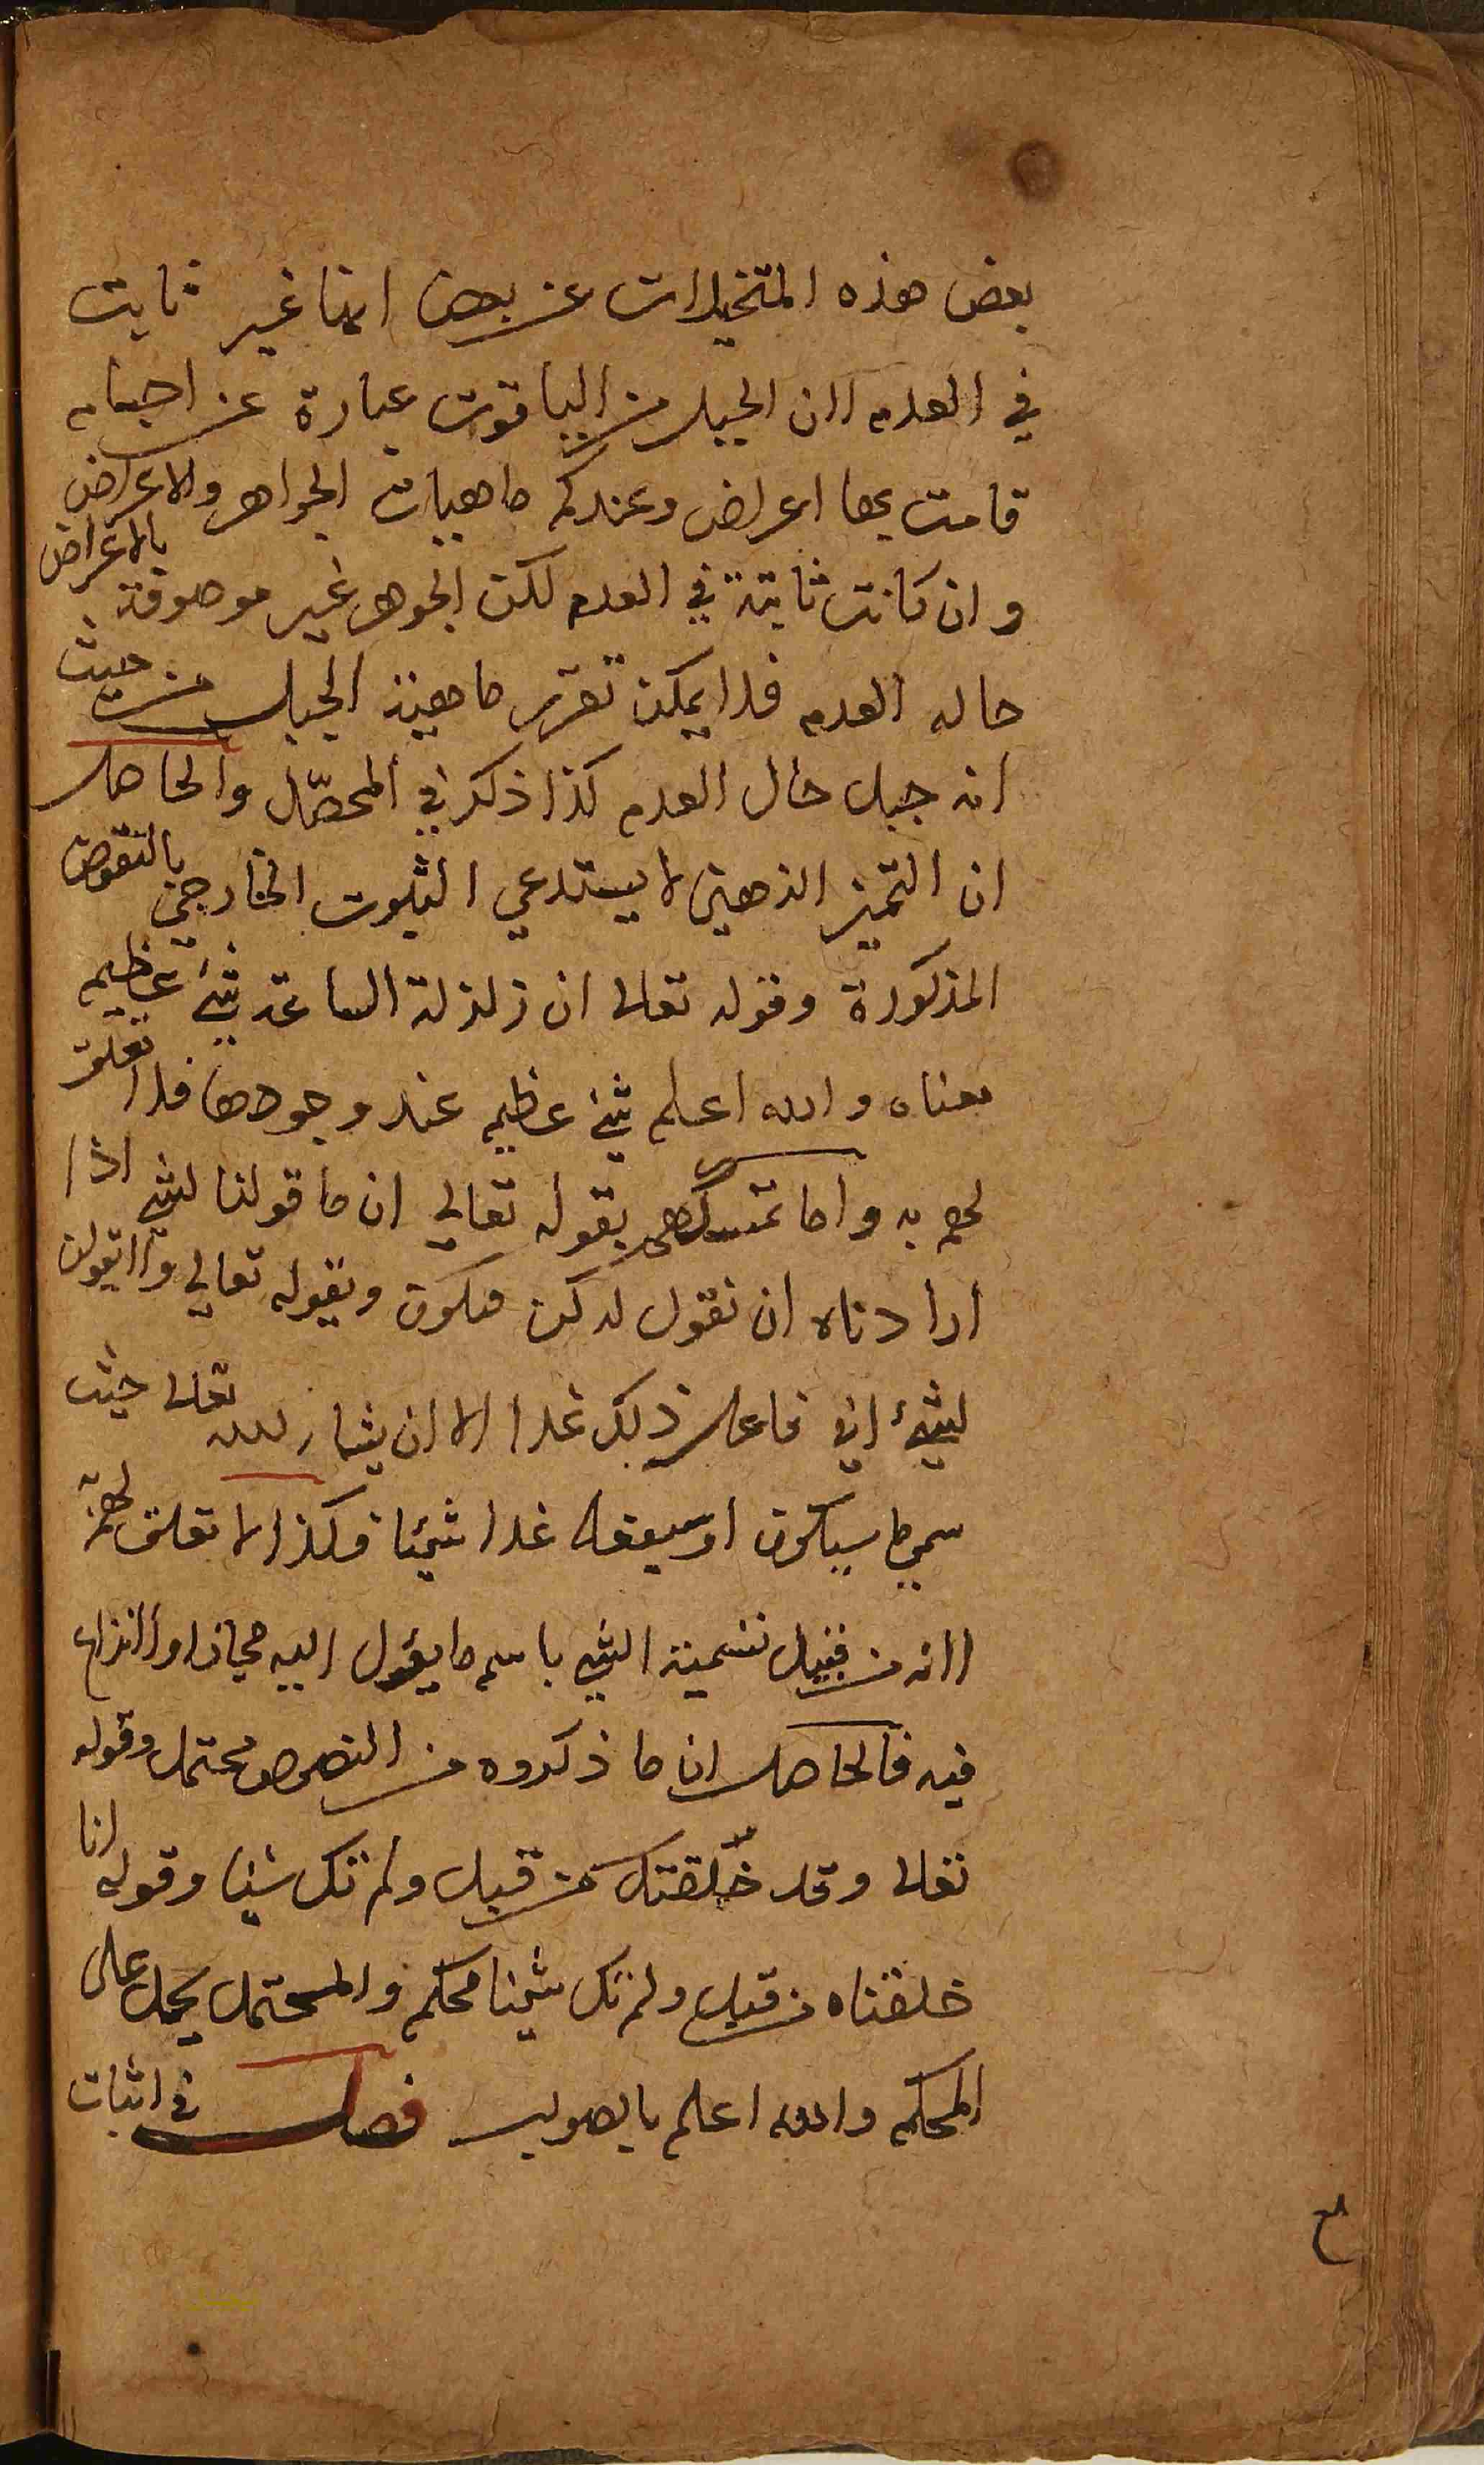 بعض هذه المتخيلات عن بعض انها غير ثابت
في العدم لان الجبل من الياقوت عبارة عن اجسام
قامت بها اعراض وعندكم ماهيات الجواهر والاعراض
وان كانت ثابتة في العدم لكن الجوهر غير موصوفة بالاعراض
حاله العدم فلا يمكن تقرير ماهية الجبل من حيث
انه جبل حال العدم كذا ذكر في المحصّل والحاصل
ان التميز الذهني لا يستدعي الثبوت الخارجي بالنقوض
المذكورة وقوله تعالى ان زلزلة الساعة شيء عظيم
معناه والله اعلم شيء عظيم عند وجودها فلا تعلق
لهم به واما تمسكهم بقوله تعالى ان ما قولنا لشيء اذا
ارادناه ان نقول له كن فيكون وبقوله تعالى ولا تقولن
لشيء اني فاعل ذلك غدا الا ان يشاء الله تعالى حيث
سمي ما سيكون او سيفعل غدا شيئا فكذا لا تعلق لهم به
لانه من قبيل تسمية الشيء باسم ما يؤول اليه مجازا ولا نزاع
فيه فالحاصل ان ما ذكروه من النصوص محتمل وقوله
تعالى وقد خلقتك من قبل ولم تك شيئا وقوله انا
خلقناه من قبل ولم تك شيئا محكم والمحتمل يحمل على
المحكم والله اعلم بالصواب فصل في اثبات